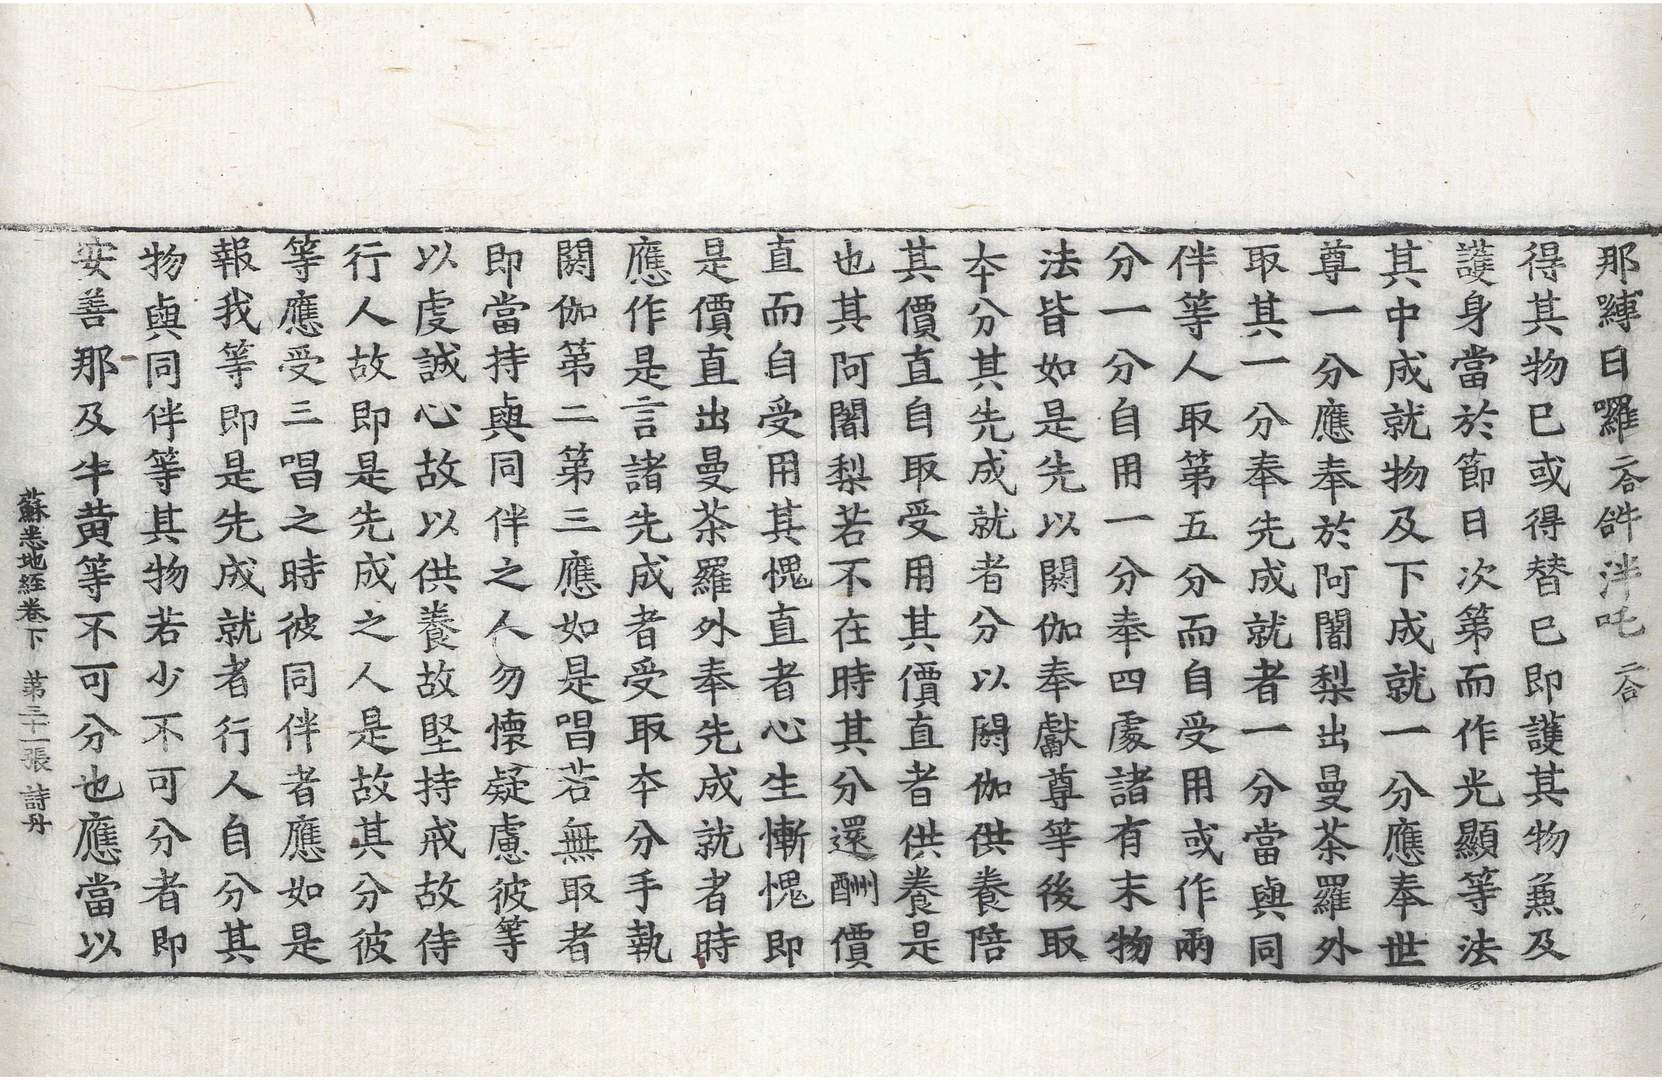 那嚩日囉二合𤙖泮吒二合
得其物已或得替已即護其物兼及
護身當於節日次第而作光顯等法
其中成就物及下成就一分應奉世
尊一分應奉於阿闍梨出曼荼羅外
取其一分奉先成就者一分當與同
伴等人取第五分而自受用或作兩
分一分自用一分奉四處諸有末物
法皆如是先以閼伽奉獻尊等後取
本分其先成就者分以閼伽供養陪
其價直自取受用其價直者供養是
也其阿闍梨若不在時其分還酬價
直而自受用其愧直者心生慚愧即
是價直出曼荼羅外奉先成就者時
應作是言諸先成者受取本分手執
閼伽第二第三應如是唱若無取者
即當持與同伴之人勿懷疑慮彼等
以虔誠心故以供養故堅持戒故侍
行人故即是先成之人是故其分彼
等應受三唱之時彼同伴者應如是
報我等即是先成就者行人自分其
物與同伴等其物若少不可分者即
安善那及牛黃等不可分也應當以
蘇悉地經卷下　第三十一張　詩丹